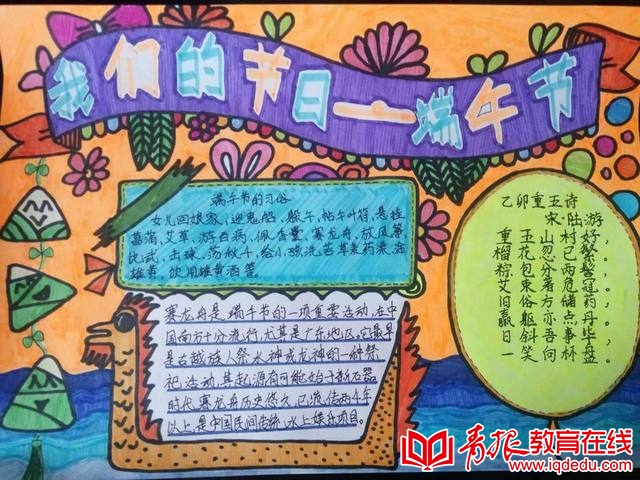 我们的节日——端午节
端午节的习俗
女儿回娘家,迎鬼船、躲午,帖午叶符,悬挂
菖蒲、艾草,游百病,佩香囊,赛龙舟,放风筝,
比武,击球,荡秋千,给小孩洗苦草麦药澡,涂
雄黄,饮用雄黄酒等。
赛龙舟是端午节的一项重要活动,在中
国南方十分流行,尤其是广东地区,它最早
是古越族人祭水神或龙神的一种祭
祀活动,其起源有可能始于新石器
时代.赛龙舟历史悠久,已流传两千年
以上,是中国民间传统水上娱乐项目。
乙卯重五诗
宋·陆游
重五山村好,
榴花忽已繁。
粽包分两髻,
艾束著危冠。
旧俗方储药,
羸躯亦点丹。
日斜吾事毕,
一笑向杯盘。
青报教育在线
www.iqdedu.com